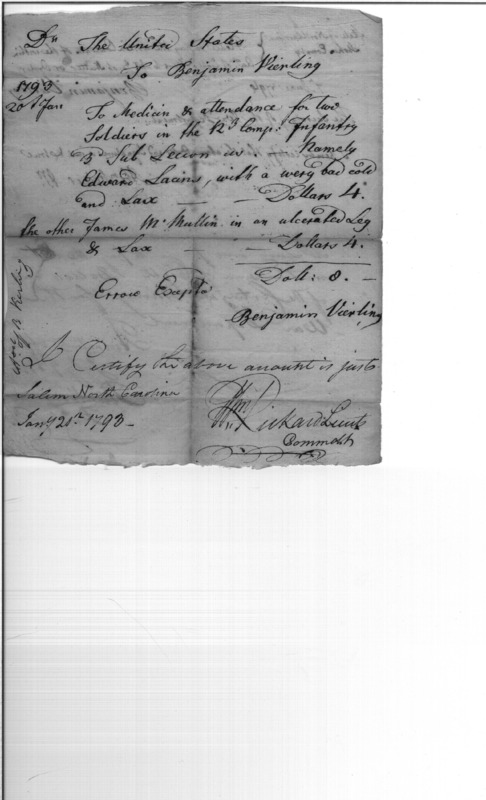 Dr The United States
To Benjamin Vierling
1793
20st Jan To Medicin & attendance for two
Soldiers in the 12d Comp: Infantry
3 Sub Lecion as Namely
Edward Lacins, with a wery bad cold
and Lax — — Dollars 4.
the other James Mc Mullin in an ulcerated Leg
& Lax — Dollars 4.
Doll: 8. —
Errow Exepto
Benjamin Vierling
I Certify the above account is just
Salem North Carolina
Jany 20th 1793 —
Wm Rickard Lieut
Commdt